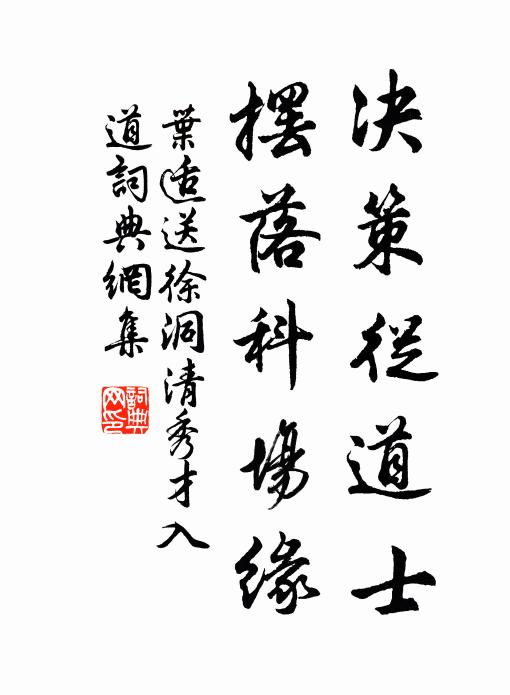 決策從道士
擺落科場緣
葉适送徐洞清秀才入
道詞典網集
詞典網印